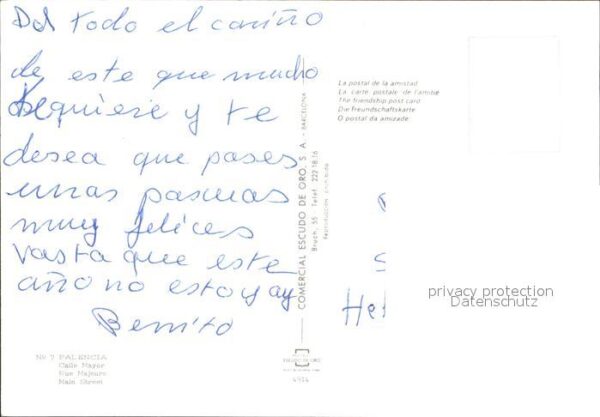 Del todo el cariño
de este que mucho
tequiere y te
desea que pases
unas pascuas
muy felices
vasta que este
año no estoy ay
Benito
Nº 7 PALENCIA
Calle Mayor
Rue Majeure
Main Street
COMERCIAL ESCUDO DE ORO, S. A. - BARCELONA
Bruch, 55 - Telef. 222 18 16
Reproducción prohibida
ESCUDO DE ORO
4914
La postal de la amistad
La carte postale de l'amitié
The friendship post card
Die Freundschaftskarte
O postal da amizade
privacy protection
Datenschutz